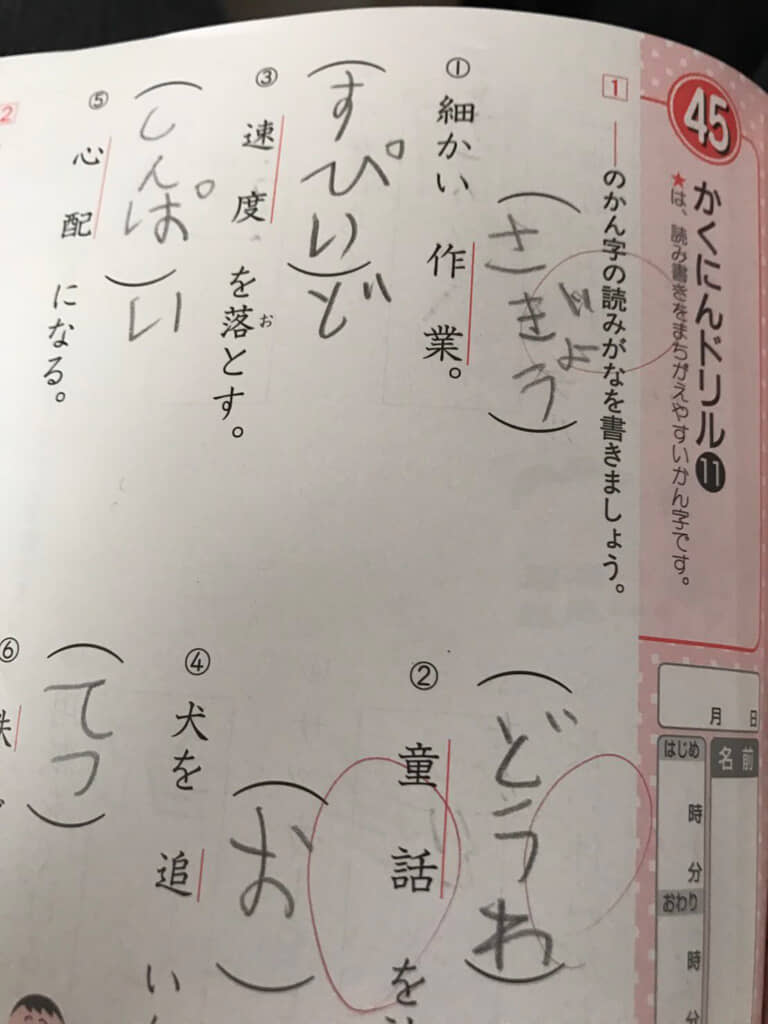 45
かくにんドリル⓫
★は、読み書きをまちがえやすいかん字です。
月 日
名前
はじめ
時
分
おわり
時
分
1 ―のかん字の読みがなを書きましょう。
① 細かい作業。
(さぎょう)
② 童話を
(どうわ)
③ 速度を落とす。
お
(すぴい)ど
④ 犬を追い
(お)
⑤ 心配になる。
(しんぱ)い
⑥
(てつ)
2